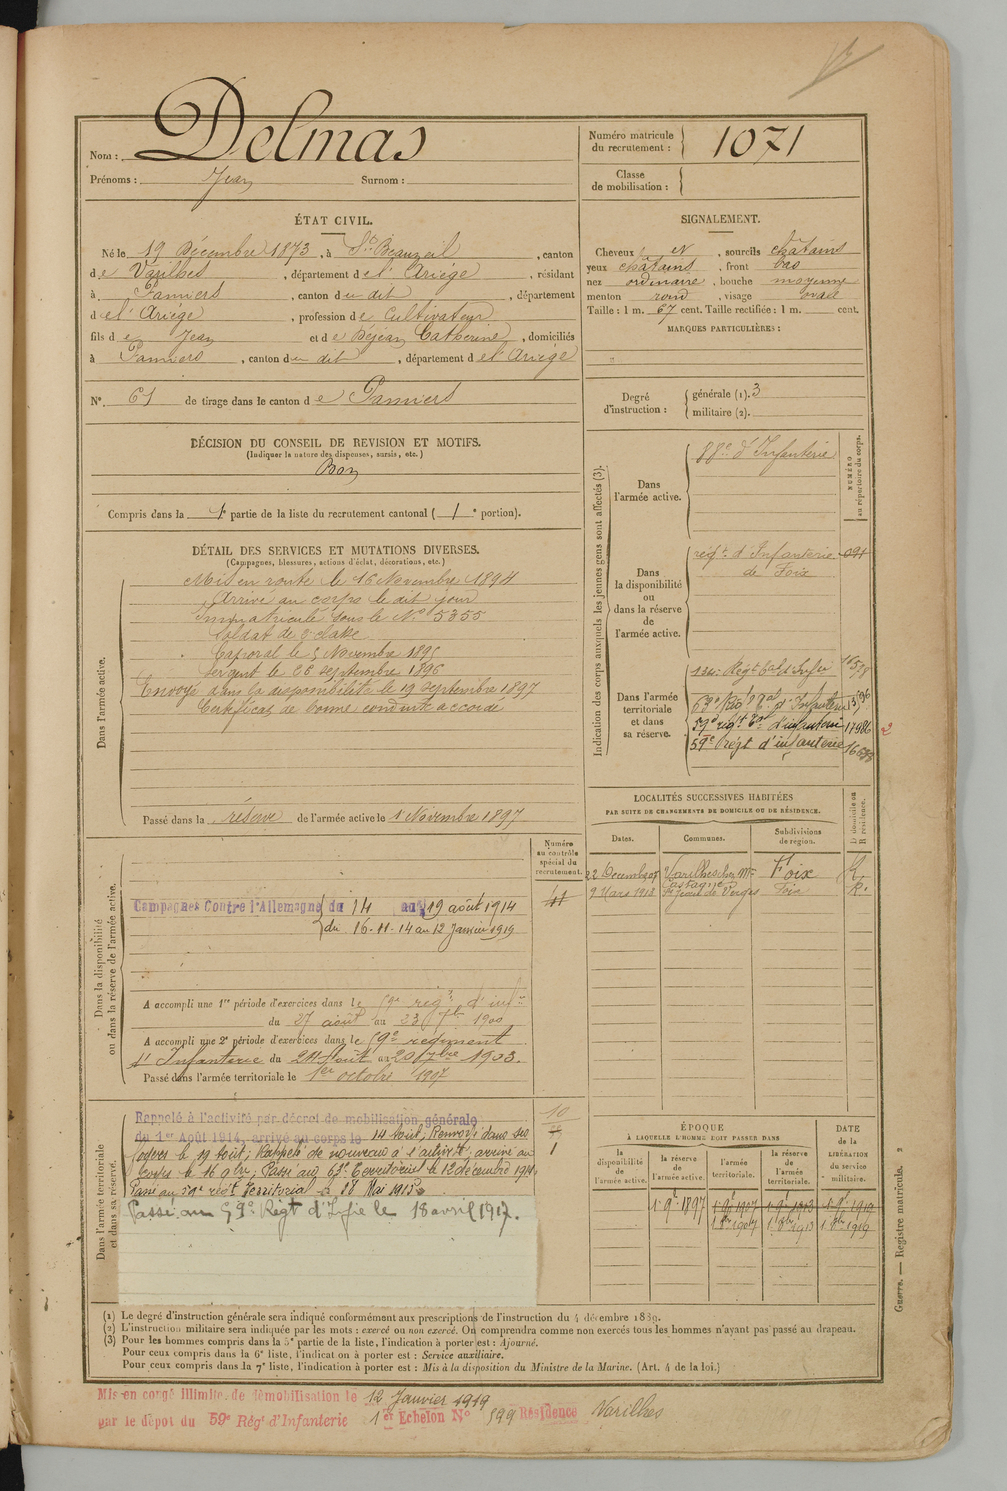 Nom : Delmas
Prénoms : Jean Surnom :
Numéro matricule du recrutement : 1071
Classe de mobilisation :
ÉTAT CIVIL.
Né le 19 Décembre 1873, à St Bauzeil, canton
de Varilhes, département de l'Ariège, résidant
à Pamiers, canton du dit, département
de l'Ariège, profession de Cultivateur
fils de Jean et de Déjean Catherine, domiciliés
à Pamiers, canton du dit, département de l'Ariège
N° 61 de tirage dans le canton de Pamiers
SIGNALEMENT.
Cheveux et, sourcils châtains
yeux châtains, front bas
nez ordinaire, bouche moyenne
menton rond, visage ovale
Taille : 1 m. 67 cent. Taille rectifiée : 1 m. cent.
MARQUES PARTICULIÈRES :
Degré d'instruction : générale (1). 3
militaire (2).
DÉCISION DU CONSEIL DE REVISION ET MOTIFS.
(Indiquer la nature des dispenses, sursis, etc.)
Bon
Compris dans la partie de la liste du recrutement cantonal ( 1e portion).
DÉTAIL DES SERVICES ET MUTATIONS DIVERSES.
(Campagnes, blessures, actions d'éclat, décorations, etc.)
Dans l'armée active.
Mis en route le 16 Novembre 1894
Arrivé au corps le dit jour
Immatriculé sous le N° 5355
Soldat de 2e classe
Caporal le 5 Novembre 1895
Sergent le 26 septembre 1896
Envoyé dans la disponibilité le 19 septembre 1897
Certificat de bonne conduite accordé
Passé dans la réserve de l'armée active le 1 Novembre 1897
Indication des corps auxquels les jeunes gens sont affectés (3).
NUMÉRO au répertoire du corps.
Dans l'armée active.
88e d'Infanterie
Dans la disponibilité ou dans la réserve de l'armée active.
régt d'Infanterie
de Foix
Dans l'armée territoriale et dans sa réserve.
134e Régt tal d'Infie
63e Régt Tal d'Infanterie
59e régt Tal d'infanterie 17986
59e régt d'infanterie
2
LOCALITÉS SUCCESSIVES HABITÉES
PAR SUITE DE CHANGEMENTS DE DOMICILE OU DE RÉSIDENCE.
Dates. Communes. Subdivisions de région. D domicile ou R résidence.
22 Décembre 07 Varilhes Foix R.
9 Mars 1918 St Jean de Verges Foix R.
Numéro au contrôle spécial du recrutement.
Dans la disponibilité ou dans la réserve de l'armée active.
Campagnes Contre l'Allemagne du 14 au 19 août 1914
du 16-11-14 au 12 Janvier 1919
A accompli une 1re période d'exercices dans le 59e régt d'infie
du 27 août au 23 7bre 1900
A accompli une 2e période d'exercices dans le 59e régiment
d'Infanterie du 24 Août au 20 7bre 1903.
Passé dans l'armée territoriale le 1er octobre 1907
Dans l'armée territoriale et dans sa réserve.
Rappelé à l'activité par décret de mobilisation générale
du 1er Août 1914, arrivé au corps le 14 Août, Renvoyé dans ses
foyers le 19 Août; Rappelé de nouveau à l'activité, arrivé au
Corps le 16 9bre; Passé au 63e Territorial le 12 décembre 1914
Passé au 59e régt Territorial le 18 Mai 1915
Passé au 59e Régt d'Infie le 18 avril 1917.
ÉPOQUE
À LAQUELLE L'HOMME DOIT PASSER DANS
la disponibilité de l'armée active. la réserve de l'armée active. l'armée territoriale. la réserve de l'armée territoriale.
DATE de la LIBÉRATION du service militaire.
1 9e 1897 1 9e 1907 1 9e 1913 1 9e 1919
1 8bre 1907 1 8bre 1913 1 8bre 1919
(1) Le degré d'instruction générale sera indiqué conformément aux prescriptions de l'instruction du 4 décembre 1889.
(2) L'instruction militaire sera indiquée par les mots : exercé ou non exercé. On comprendra comme non exercés tous les hommes n'ayant pas passé au drapeau.
(3) Pour les hommes compris dans la 5e partie de la liste, l'indication à porter est : Ajourné.
Pour ceux compris dans la 6e liste, l'indication à porter est : Service auxiliaire.
Pour ceux compris dans la 7e liste, l'indication à porter est : Mis à la disposition du Ministre de la Marine. (Art. 4 de la loi.)
Guerre. — Registre matricule. 2
Mis en congé illimité de démobilisation le 12 Janvier 1919
par le dépot du 59e Régt d'Infanterie 1er Echelon N° 599 Résidence Varilhes